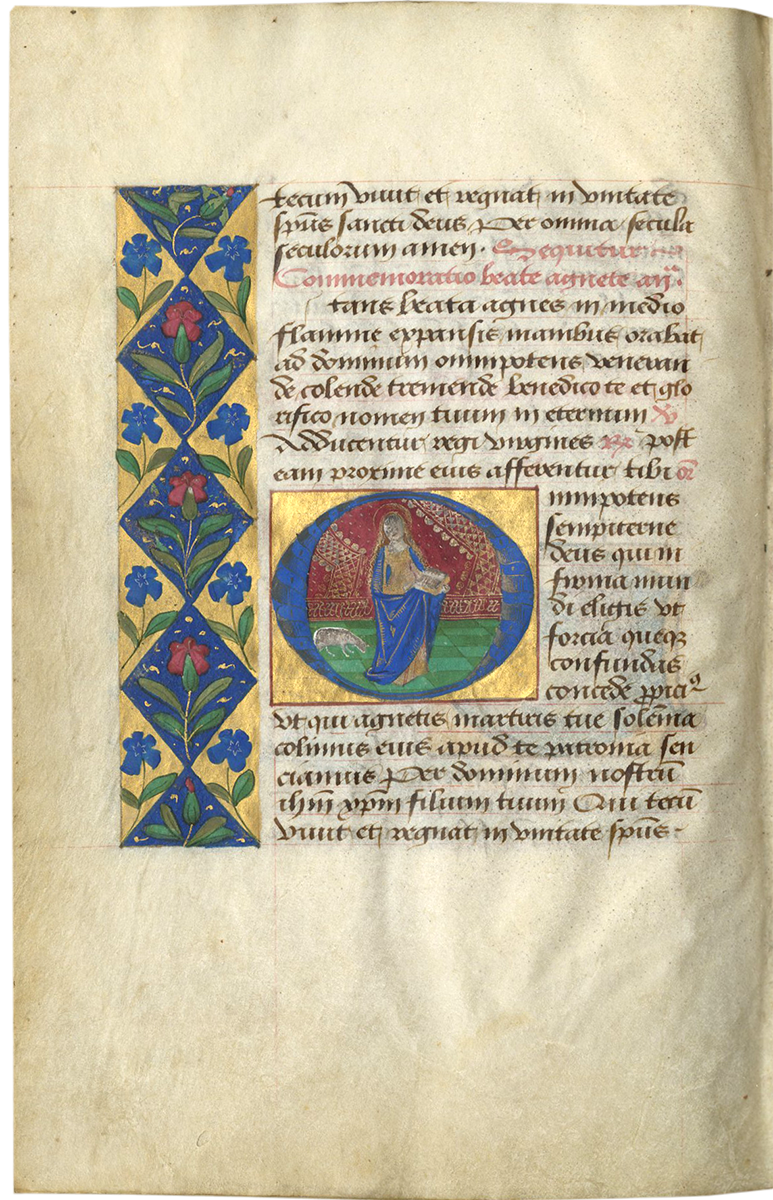 tecum viuit et regnat in vnitate
spūs sancti deus Per omnia secula
seculorum amen. Sequitur
Commemoratio beate agnete añ.
tans beata agnes in medio
flamme expansis manibus orabat
ad dominum omnipotens veneran
de colende tremende benedico te et glo
rifico nomen tuum in eternum v̄
Adducentur regi virgines R̄ post
eam proxime eius afferentur tibi or̄
mnipotens
sempiterne
deus qui in
firma mun
di eligis vt
forcia queqȝ
confundas
concede ꝓpiciꝰ
vt qui agnetis martiris tue solēnia
colimus eius apud te patrocinia sen
ciamus Per dominum nostrū
ihm̄ xpm̄ filium tuum Qui tecū
viuit et regnat in vnitate spūs.